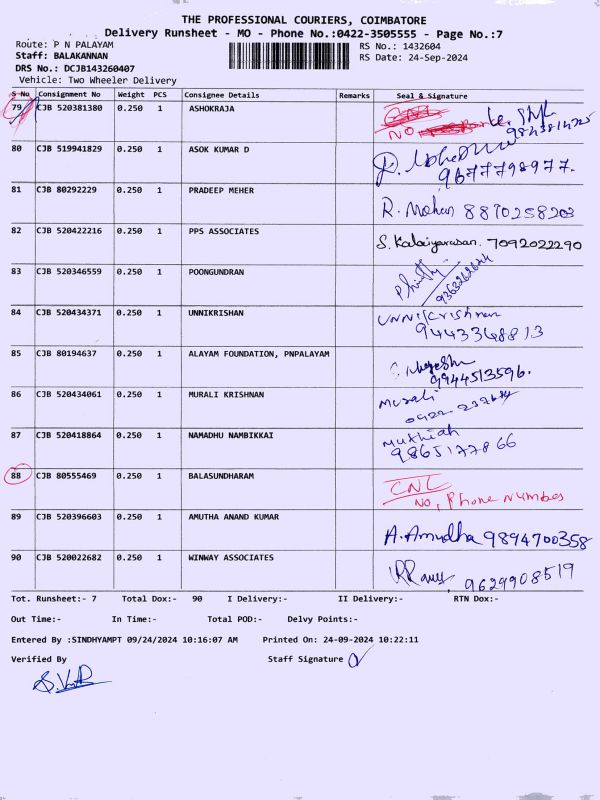 THE PROFESSIONAL COURIERS, COIMBATORE
Delivery Runsheet - MO - Phone No.:0422-3505555 - Page No.:7
Route: P N PALAYAM
RS No.: 1432604
Staff: BALAKANNAN
RS Date: 24-Sep-2024
DRS No.: DCJB143260407
Vehicle: Two Wheeler Delivery
S No Consignment No Weight PCS Consignee Details Remarks Seal & Signature
79 CJB 520381380 0.250 1 ASHOKRAJA
NO
80 CJB 519941829 0.250 1 ASOK KUMAR D
9677798977.
81 CJB 80292229 0.250 1 PRADEEP MEHER R. Mohan 8870258203
82 CJB 520422216 0.250 1 PPS ASSOCIATES S. Kalaiyarasan. 7092022290
83 CJB 520346559 0.250 1 POONGUNDRAN
84 CJB 520434371 0.250 1 UNNIKRISHAN UNNIKrishnan
9443348813
85 CJB 80194637 0.250 1 ALAYAM FOUNDATION, PNPALAYAM
9944513596.
86 CJB 520434061 0.250 1 MURALI KRISHNAN Murali
87 CJB 520418864 0.250 1 NAMADHU NAMBIKKAI Muthiah
9865177866
88 CJB 80555469 0.250 1 BALASUNDHARAM CNL
No, Phone Number
89 CJB 520396603 0.250 1 AMUTHA ANAND KUMAR A. Amudha 9894700358
90 CJB 520022682 0.250 1 WINWAY ASSOCIATES
9629908519
Tot. Runsheet:- 7 Total Dox:- 90 I Delivery:- II Delivery:- RTN Dox:-
Out Time:- In Time:- Total POD:- Delvy Points:-
Entered By :SINDHYAMPT 09/24/2024 10:16:07 AM Printed On: 24-09-2024 10:22:11
Verified By Staff Signature